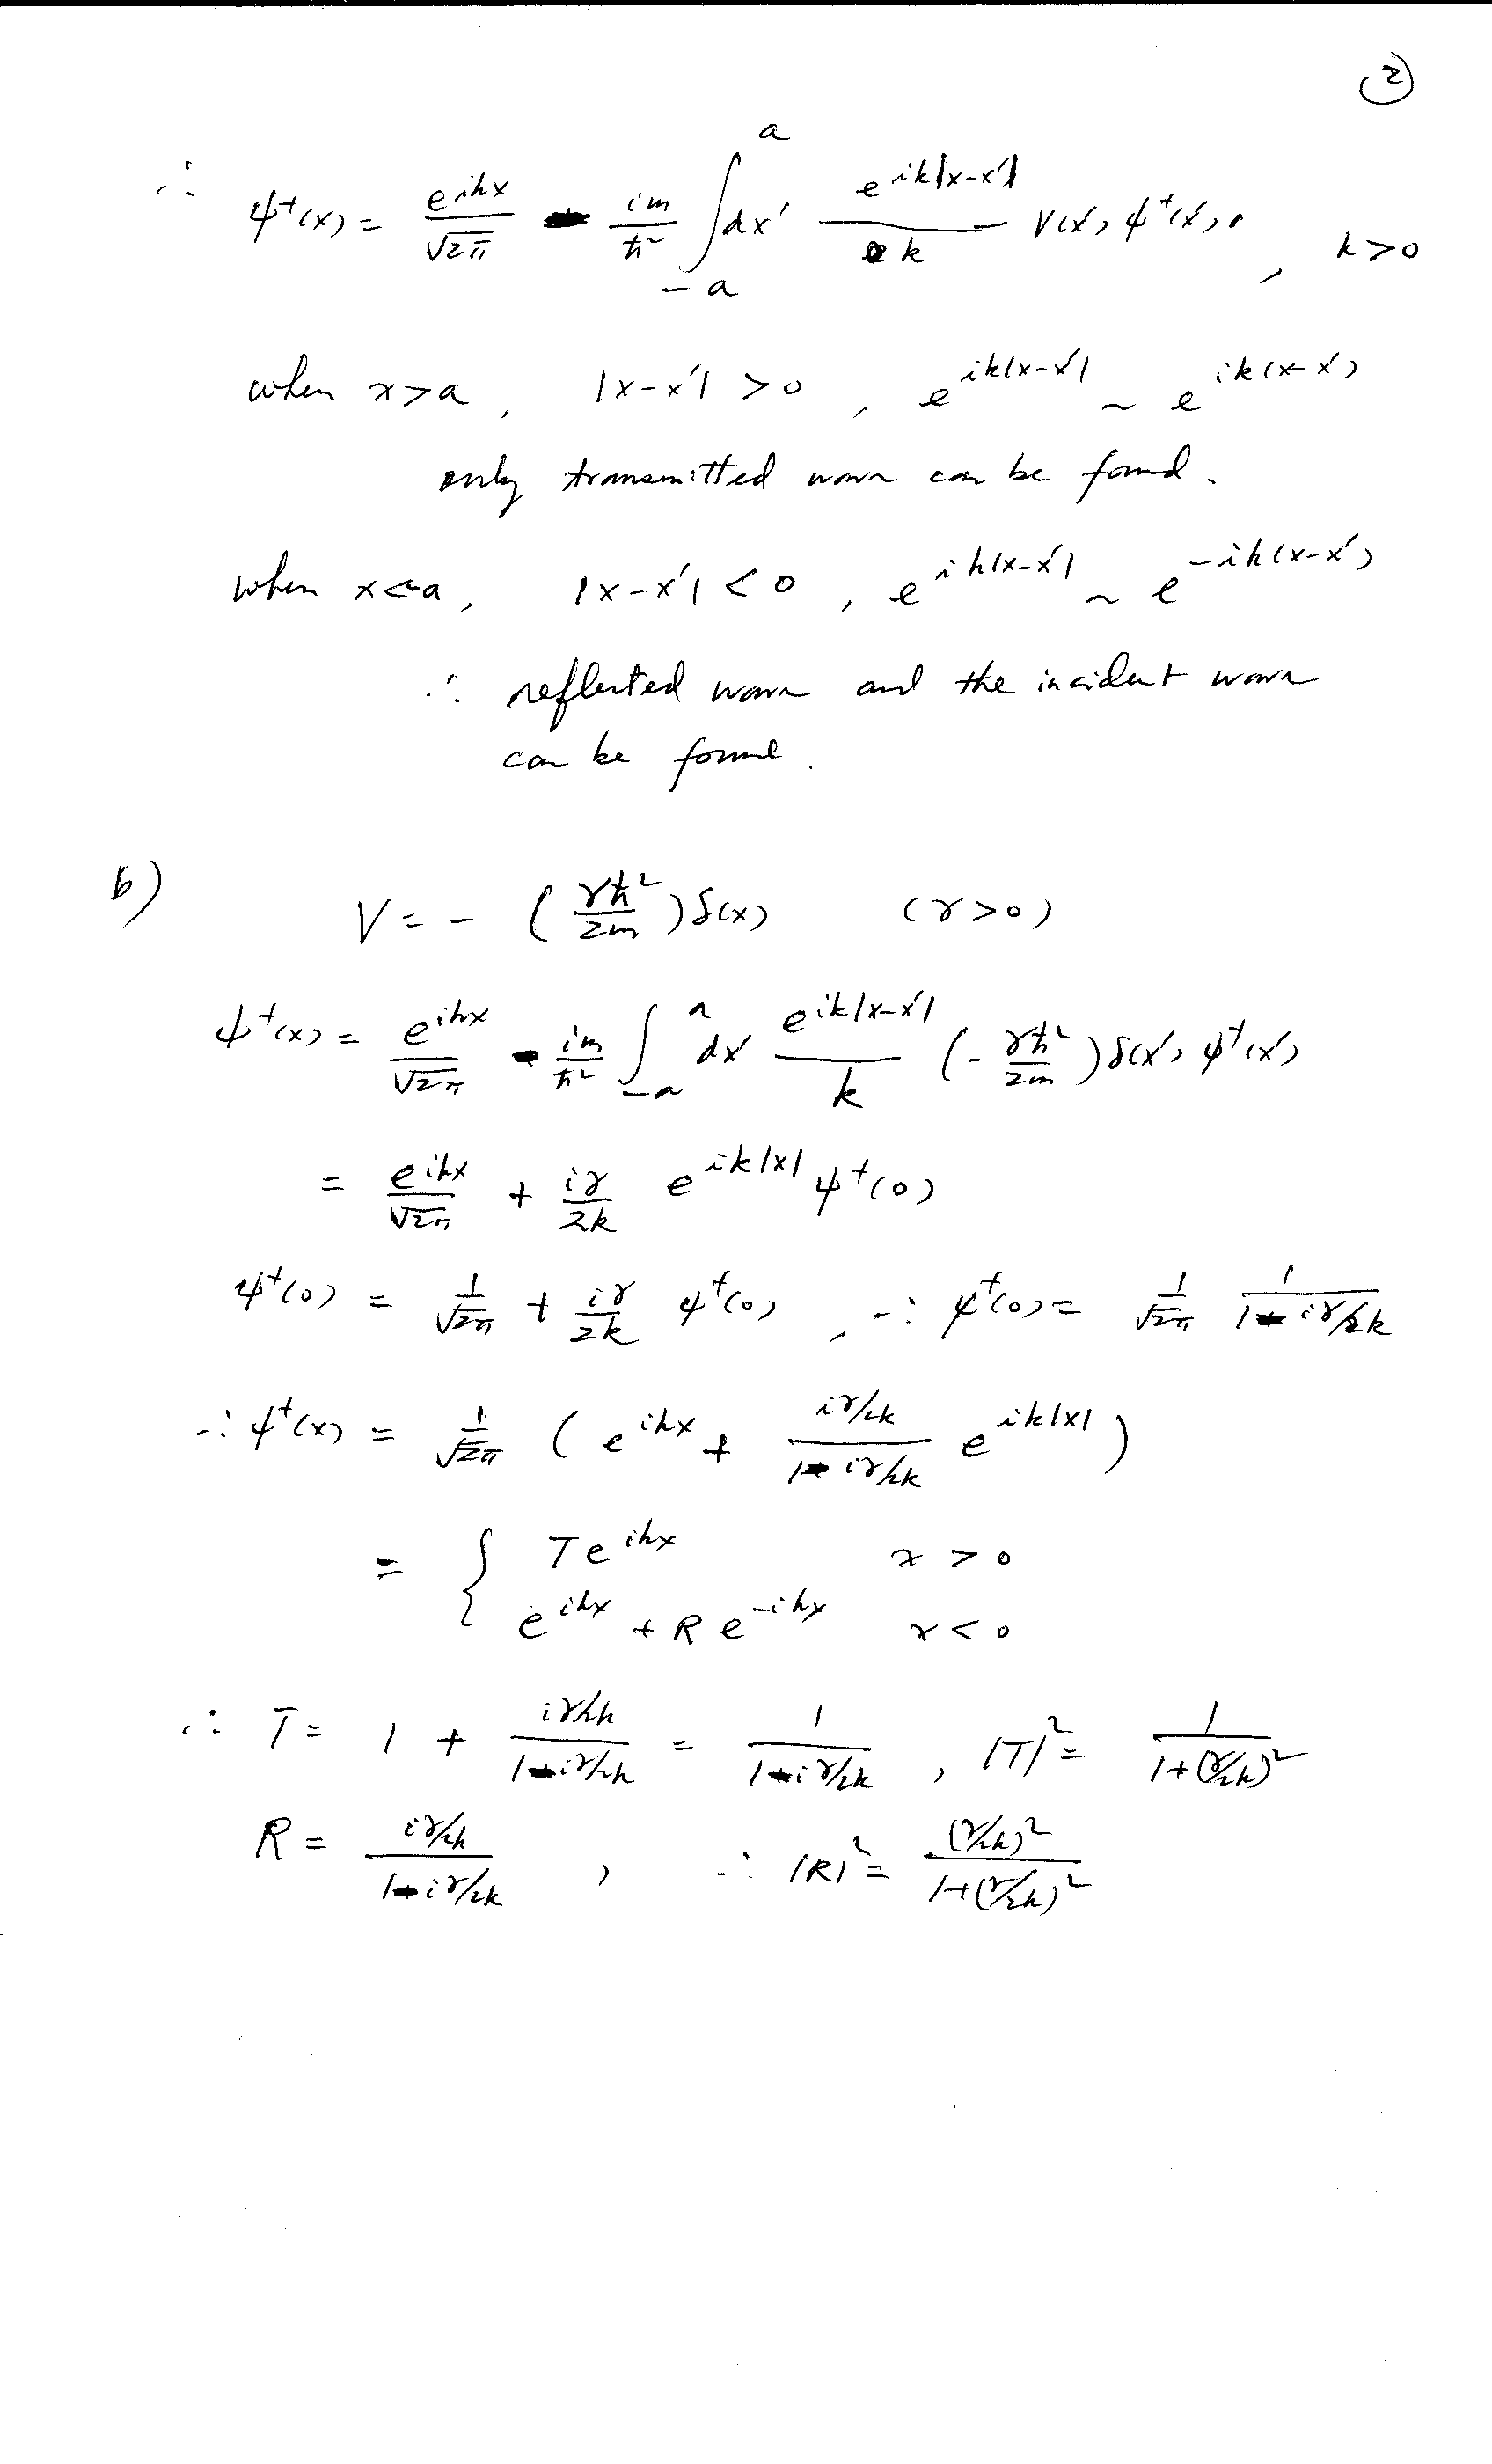 ②
∴ ψ⁺(x) = e^{ikx}/√2π - im/ħ² ∫_{-a}^{a} dx' e^{ik|x-x'|}/k V(x') ψ⁺(x'), k>0
when x>a, |x-x'| >0, e^{ik|x-x'|} ~ e^{ik(x-x')}
only transmitted wave can be found.
when x<-a, |x-x'| <0, e^{ik|x-x'|} ~ e^{-ik(x-x')}
∴ reflected wave and the incident wave
can be found.
b) V = - (γħ²/2m) δ(x) (γ>0)
ψ⁺(x) = e^{ikx}/√2π - im/ħ² ∫_{-a}^{a} dx' e^{ik|x-x'|}/k (-γħ²/2m) δ(x') ψ⁺(x')
= e^{ikx}/√2π + iγ/2k e^{ik|x|} ψ⁺(0)
ψ⁺(0) = 1/√2π + iγ/2k ψ⁺(0), ∴ ψ⁺(0) = 1/√2π 1/(1-iγ/2k)
∴ ψ⁺(x) = 1/√2π (e^{ikx} + (iγ/2k)/(1-iγ/2k) e^{ik|x|})
= { Te^{ikx} x>0
e^{ikx} + Re^{-ikx} x<0
∴ T = 1 + (iγ/2k)/(1-iγ/2k) = 1/(1-iγ/2k), |T|² = 1/(1+(γ/2k)²)
R = (iγ/2k)/(1-iγ/2k), ∴ |R|² = (γ/2k)²/(1+(γ/2k)²)